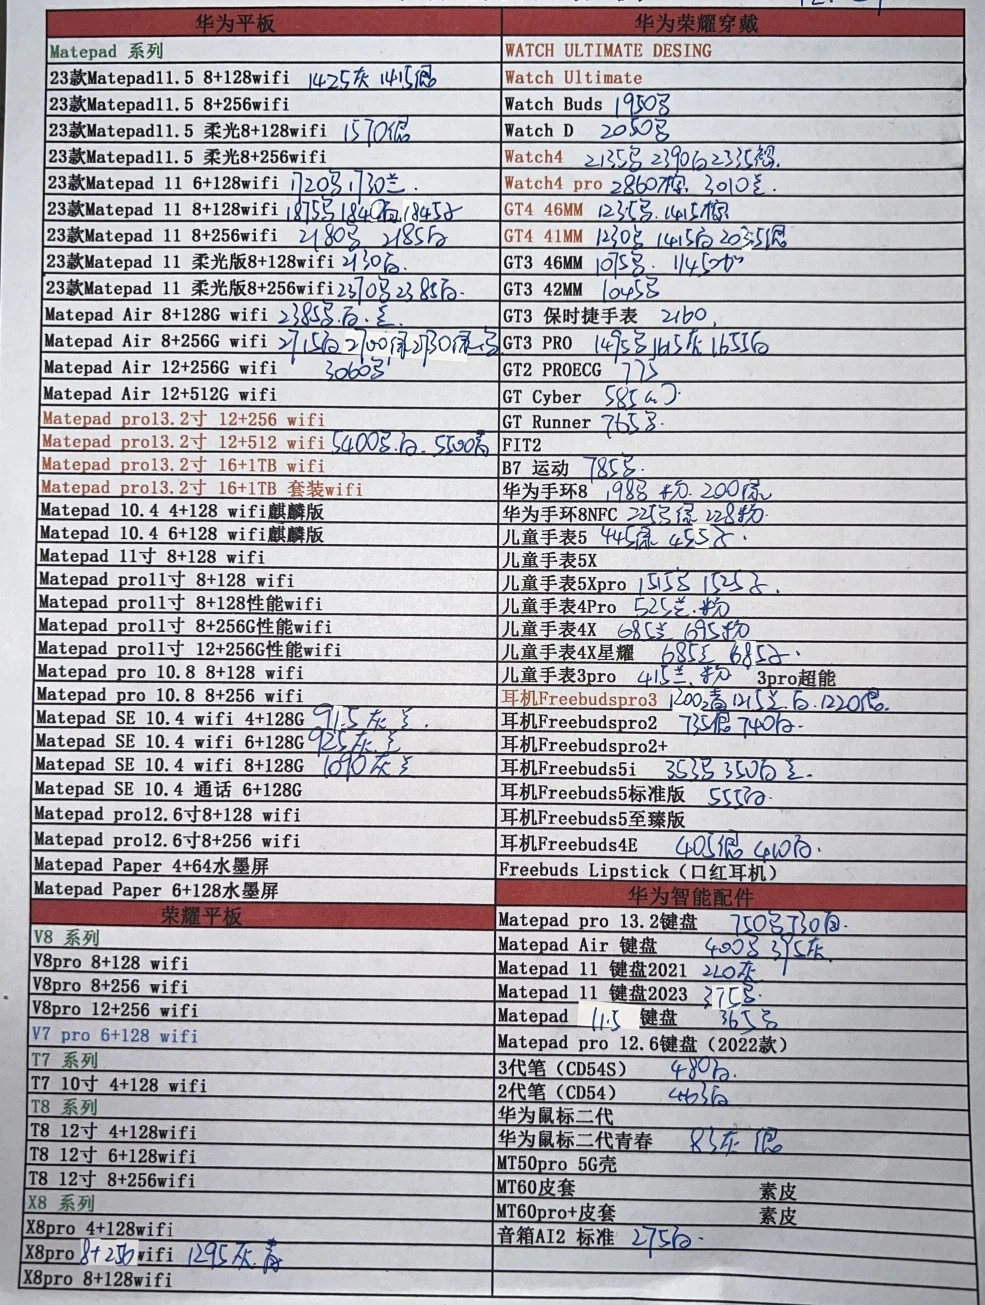 华为平板
Matepad 系列
23款Matepad11.5 8+128wifi 1425灰 1415
23款Matepad11.5 8+256wifi
23款Matepad11.5 柔光8+128wifi 1570
23款Matepad11.5 柔光8+256wifi
23款Matepad 11 6+128wifi 1720 1730兰.
23款Matepad 11 8+128wifi 1875 1840白 1845
23款Matepad 11 8+256wifi 2180 2185白
23款Matepad 11 柔光版8+128wifi 2130白.
23款Matepad 11 柔光版8+256wifi 2370 2385白.
Matepad Air 8+128G wifi 2385 白.
Matepad Air 8+256G wifi 2715白 2700绿 2730
Matepad Air 12+256G wifi 3060
Matepad Air 12+512G wifi
Matepad pro13.2寸 12+256 wifi
Matepad pro13.2寸 12+512 wifi 5400 白. 5500青
Matepad pro13.2寸 16+1TB wifi
Matepad pro13.2寸 16+1TB 套装wifi
Matepad 10.4 4+128 wifi麒麟版
Matepad 10.4 6+128 wifi麒麟版
Matepad 11寸 8+128 wifi
Matepad pro11寸 8+128 wifi
Matepad pro11寸 8+128性能wifi
Matepad pro11寸 8+256G性能wifi
Matepad pro11寸 12+256G性能wifi
Matepad pro 10.8 8+128 wifi
Matepad pro 10.8 8+256 wifi
Matepad SE 10.4 wifi 4+128G 915灰
Matepad SE 10.4 wifi 6+128G 925灰
Matepad SE 10.4 wifi 8+128G 1090灰
Matepad SE 10.4 通话 6+128G
Matepad pro12.6寸8+128 wifi
Matepad pro12.6寸8+256 wifi
Matepad Paper 4+64水墨屏
Matepad Paper 6+128水墨屏
荣耀平板
V8 系列
V8pro 8+128 wifi
V8pro 8+256 wifi
V8pro 12+256 wifi
V7 pro 6+128 wifi
T7 系列
T7 10寸 4+128 wifi
T8 系列
T8 12寸 4+128wifi
T8 12寸 6+128wifi
T8 12寸 8+256wifi
X8 系列
X8pro 4+128wifi
X8pro 8+256 wifi 1295灰.青
X8pro 8+128wifi
华为荣耀穿戴
WATCH ULTIMATE DESING
Watch Ultimate
Watch Buds 1950
Watch D 2050
Watch4 2135 2390白 2335
Watch4 pro 2860 3010
GT4 46MM 1235 . 1415
GT4 41MM 1230 1415白 2035
GT3 46MM 1075 . 1145
GT3 42MM 1045
GT3 保时捷手表 2160
GT3 PRO 1475 1615灰 1655白
GT2 PROECG 775
GT Cyber 585
GT Runner 765
FIT2
B7 运动 785
华为手环8 198 粉. 200绿
华为手环8NFC 225 绿 228粉.
儿童手表5 445 455
儿童手表5X
儿童手表5Xpro 1515 1525
儿童手表4Pro 525兰.粉
儿童手表4X 685兰 695粉
儿童手表4X星耀 685 685
儿童手表3pro 415兰.粉 3pro超能
耳机Freebudspro3 1200青 1215 .白.1220
耳机Freebudspro2 735 740白.
耳机Freebudspro2+
耳机Freebuds5i 353 350白
耳机Freebuds5标准版 555白.
耳机Freebuds5至臻版
耳机Freebuds4E 405 410白.
Freebuds Lipstick（口红耳机）
华为智能配件
Matepad pro 13.2键盘 750 730白.
Matepad Air 键盘 400 395灰
Matepad 11 键盘2021 220灰
Matepad 11 键盘2023 375
Matepad 11.5 键盘 365
Matepad pro 12.6键盘（2022款）
3代笔（CD54S） 480白.
2代笔（CD54） 463白
华为鼠标二代
华为鼠标二代青春 83灰
MT50pro 5G壳
MT60皮套 素皮
MT60pro+皮套 素皮
音箱AI2 标准 275白.